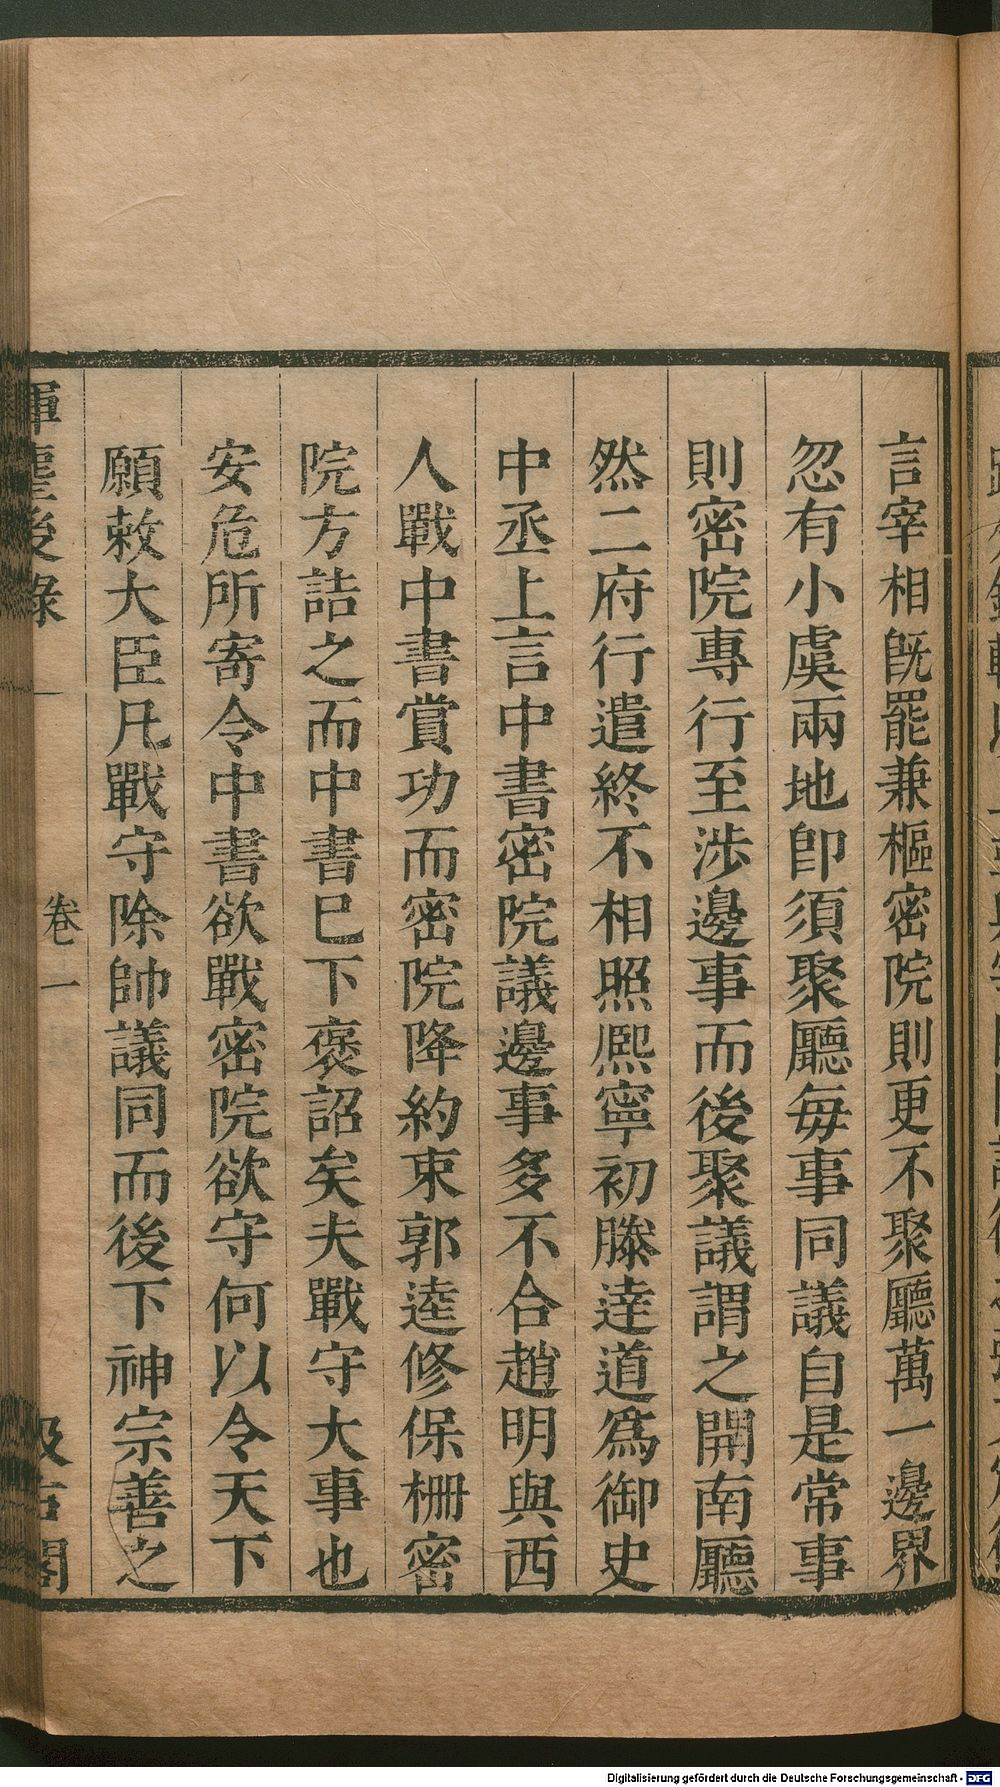 言宰相旣罷兼樞密院則更不聚廳萬一邊界
忽有小虞兩地卽須聚廳每事同議自是常事
則密院專行至涉邊事而後聚議謂之開南廳
然二府行遣終不相照熈寧初滕達道爲御史
中丞上言中書密院議邊事多不合趙明與西
人戰中書賞功而密院降約束郭逵修保柵密
院方詰之而中書已下褒詔矣夫戰守大事也
安危所寄令中書欲戰密院欲守何以令天下
願敕大臣凡戰守除帥議同而後下神宗善之
揮麈後錄
卷一
汲古閣
Digitalisierung gefördert durch die Deutsche Forschungsgemeinschaft - DFG